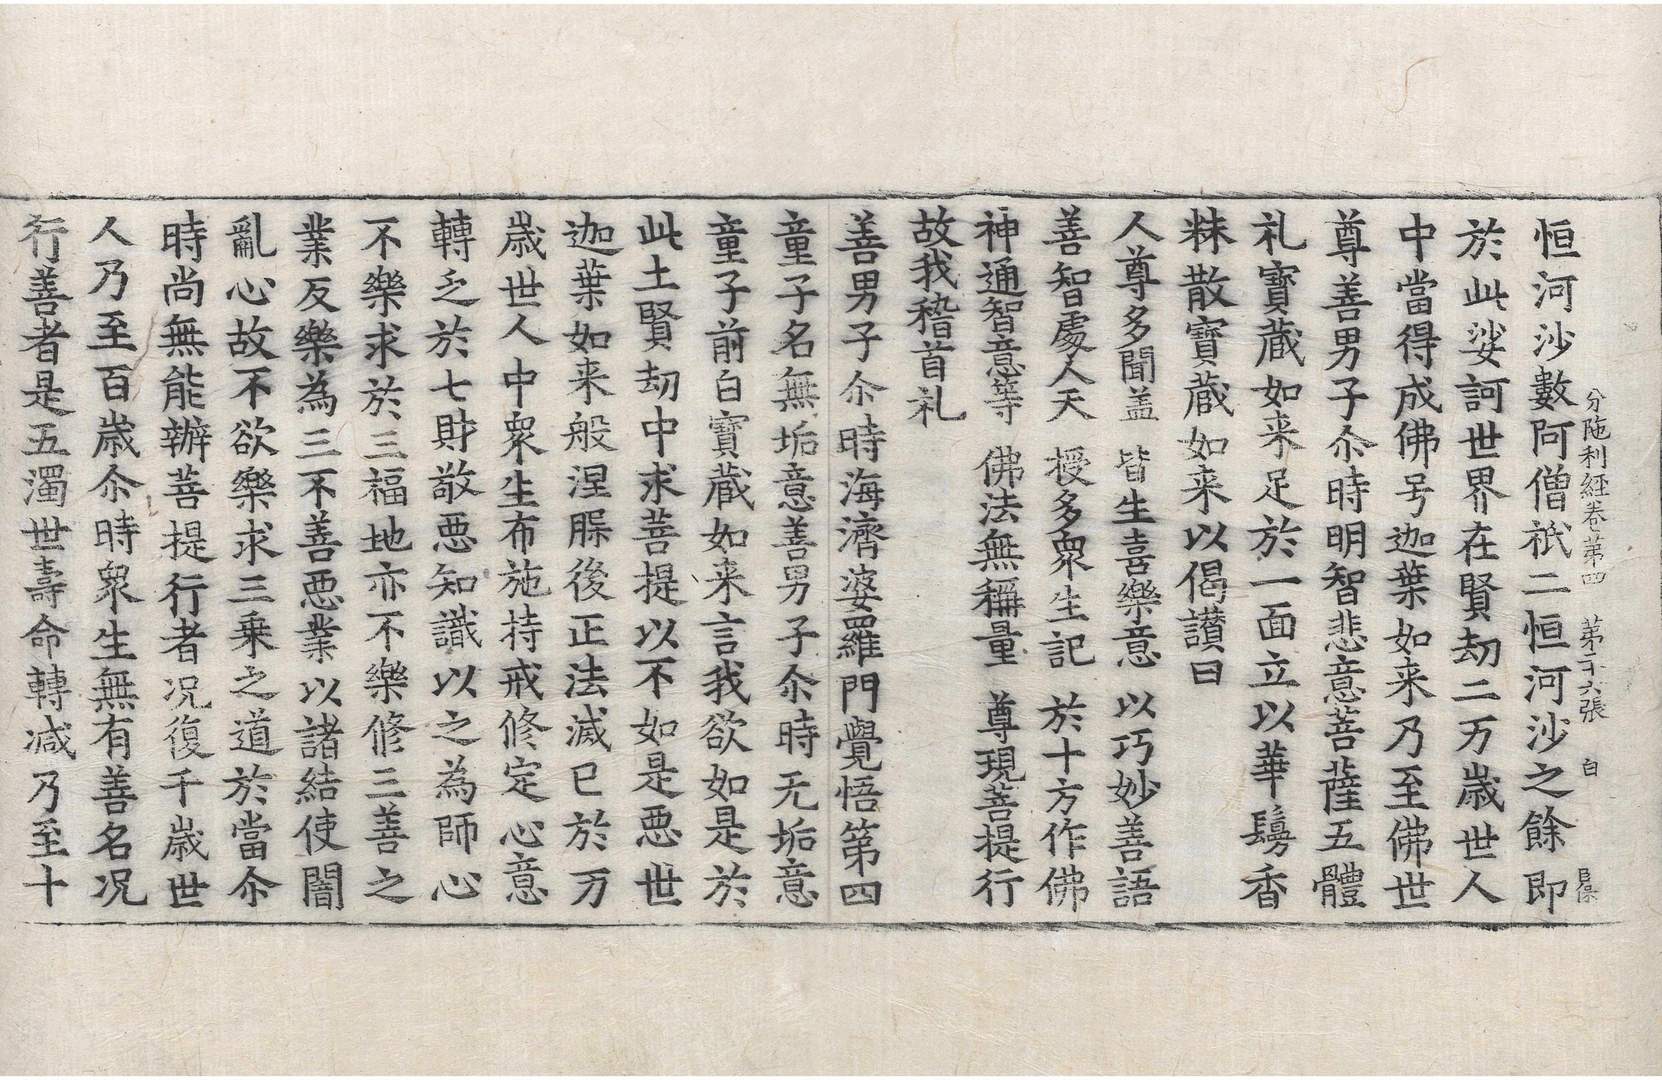 分陁利經卷第四　第二十六張　白
恒河沙數阿僧祇二恒河沙之餘即
於此娑訶世界在賢劫二万歳世人
中當得成佛号迦葉如来乃至佛世
尊善男子尒時明智悲意菩薩五體
礼寶蔵如来足於一面立以華鬘香
粖散寶蔵如来以偈讃曰
人尊多聞盖　皆生喜樂意　以巧妙善語
善智處人天　授多衆生記　於十方作佛
神通智意等　佛法無稱量　尊現菩提行
故我稽首礼
善男子尒時海濟婆羅門覺悟第四
童子名無垢意善男子尒時无垢意
童子前白寶蔵如来言我欲如是於
此土賢劫中求菩提以不如是悪世
迦葉如来般涅槃後正法滅已於万
歳世人中衆生布施持戒修定心意
轉乏於七財敬悪知識以之為師心
不樂求於三福地亦不樂修三善之
業反樂為三不善悪業以諸結使闇
亂心故不欲樂求三乗之道於當尒
時尚無能辦菩提行者况復千歳世
人乃至百歳尒時衆生無有善名况
行善者是五濁世壽命轉减乃至十